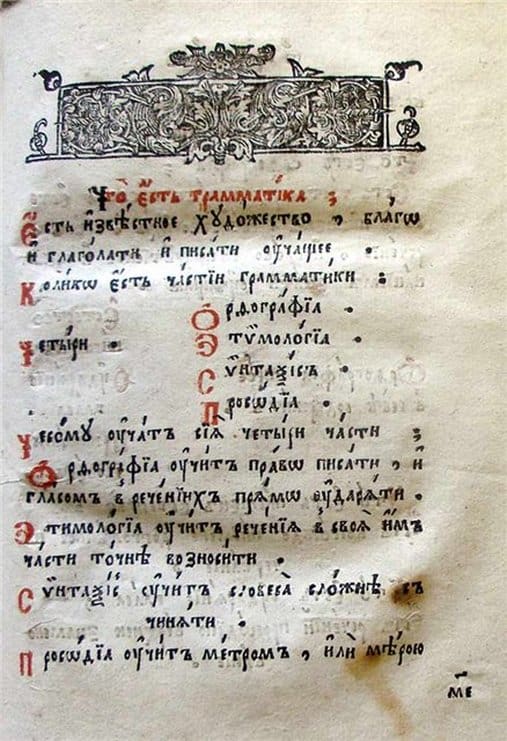 Что̀ є҆́сть грамма́тїка ;
Є҆́сть и҆звѣ́стное хꙋдо́жество , бла́гѡ
и҆ глаго́лати и҆ писа́ти ᲂу҆ча́щее .
Коли́кѡ є҆́сть часті́й грамма́тїки ;
Ѻ҆рѳогра́фїа .
Четы́ри . Э҆тѷмоло́гїа .
Сѵ́нтаѯїсъ .
Просѡді́а .
Чесомꙋ ᲂу҆ча́тъ сїѧ̑ четы́ри ча́сти ;
Ѻ҆рѳогра́фїа ᲂу҆чи́тъ пра́вѡ писа́ти , и҆
гла́сомъ в̾рече́нїихъ прѧ́мѡ ᲂу҆дарѧ́ти .
Э҆тимоло́гїа ᲂу҆чи́тъ рече́нїѧ в̾своѧ̑ и҆̀мъ
ча́сти то́чнѣ возноси́ти .
Сѵ́нтаѯїс ᲂу҆чи́тъ словеса̀ сло́жнѣ съ
чинѧ́ти .
Просѡді́а ᲂу҆чи́тъ ме́тромъ , и҆лѝ мѣ́рою
ме